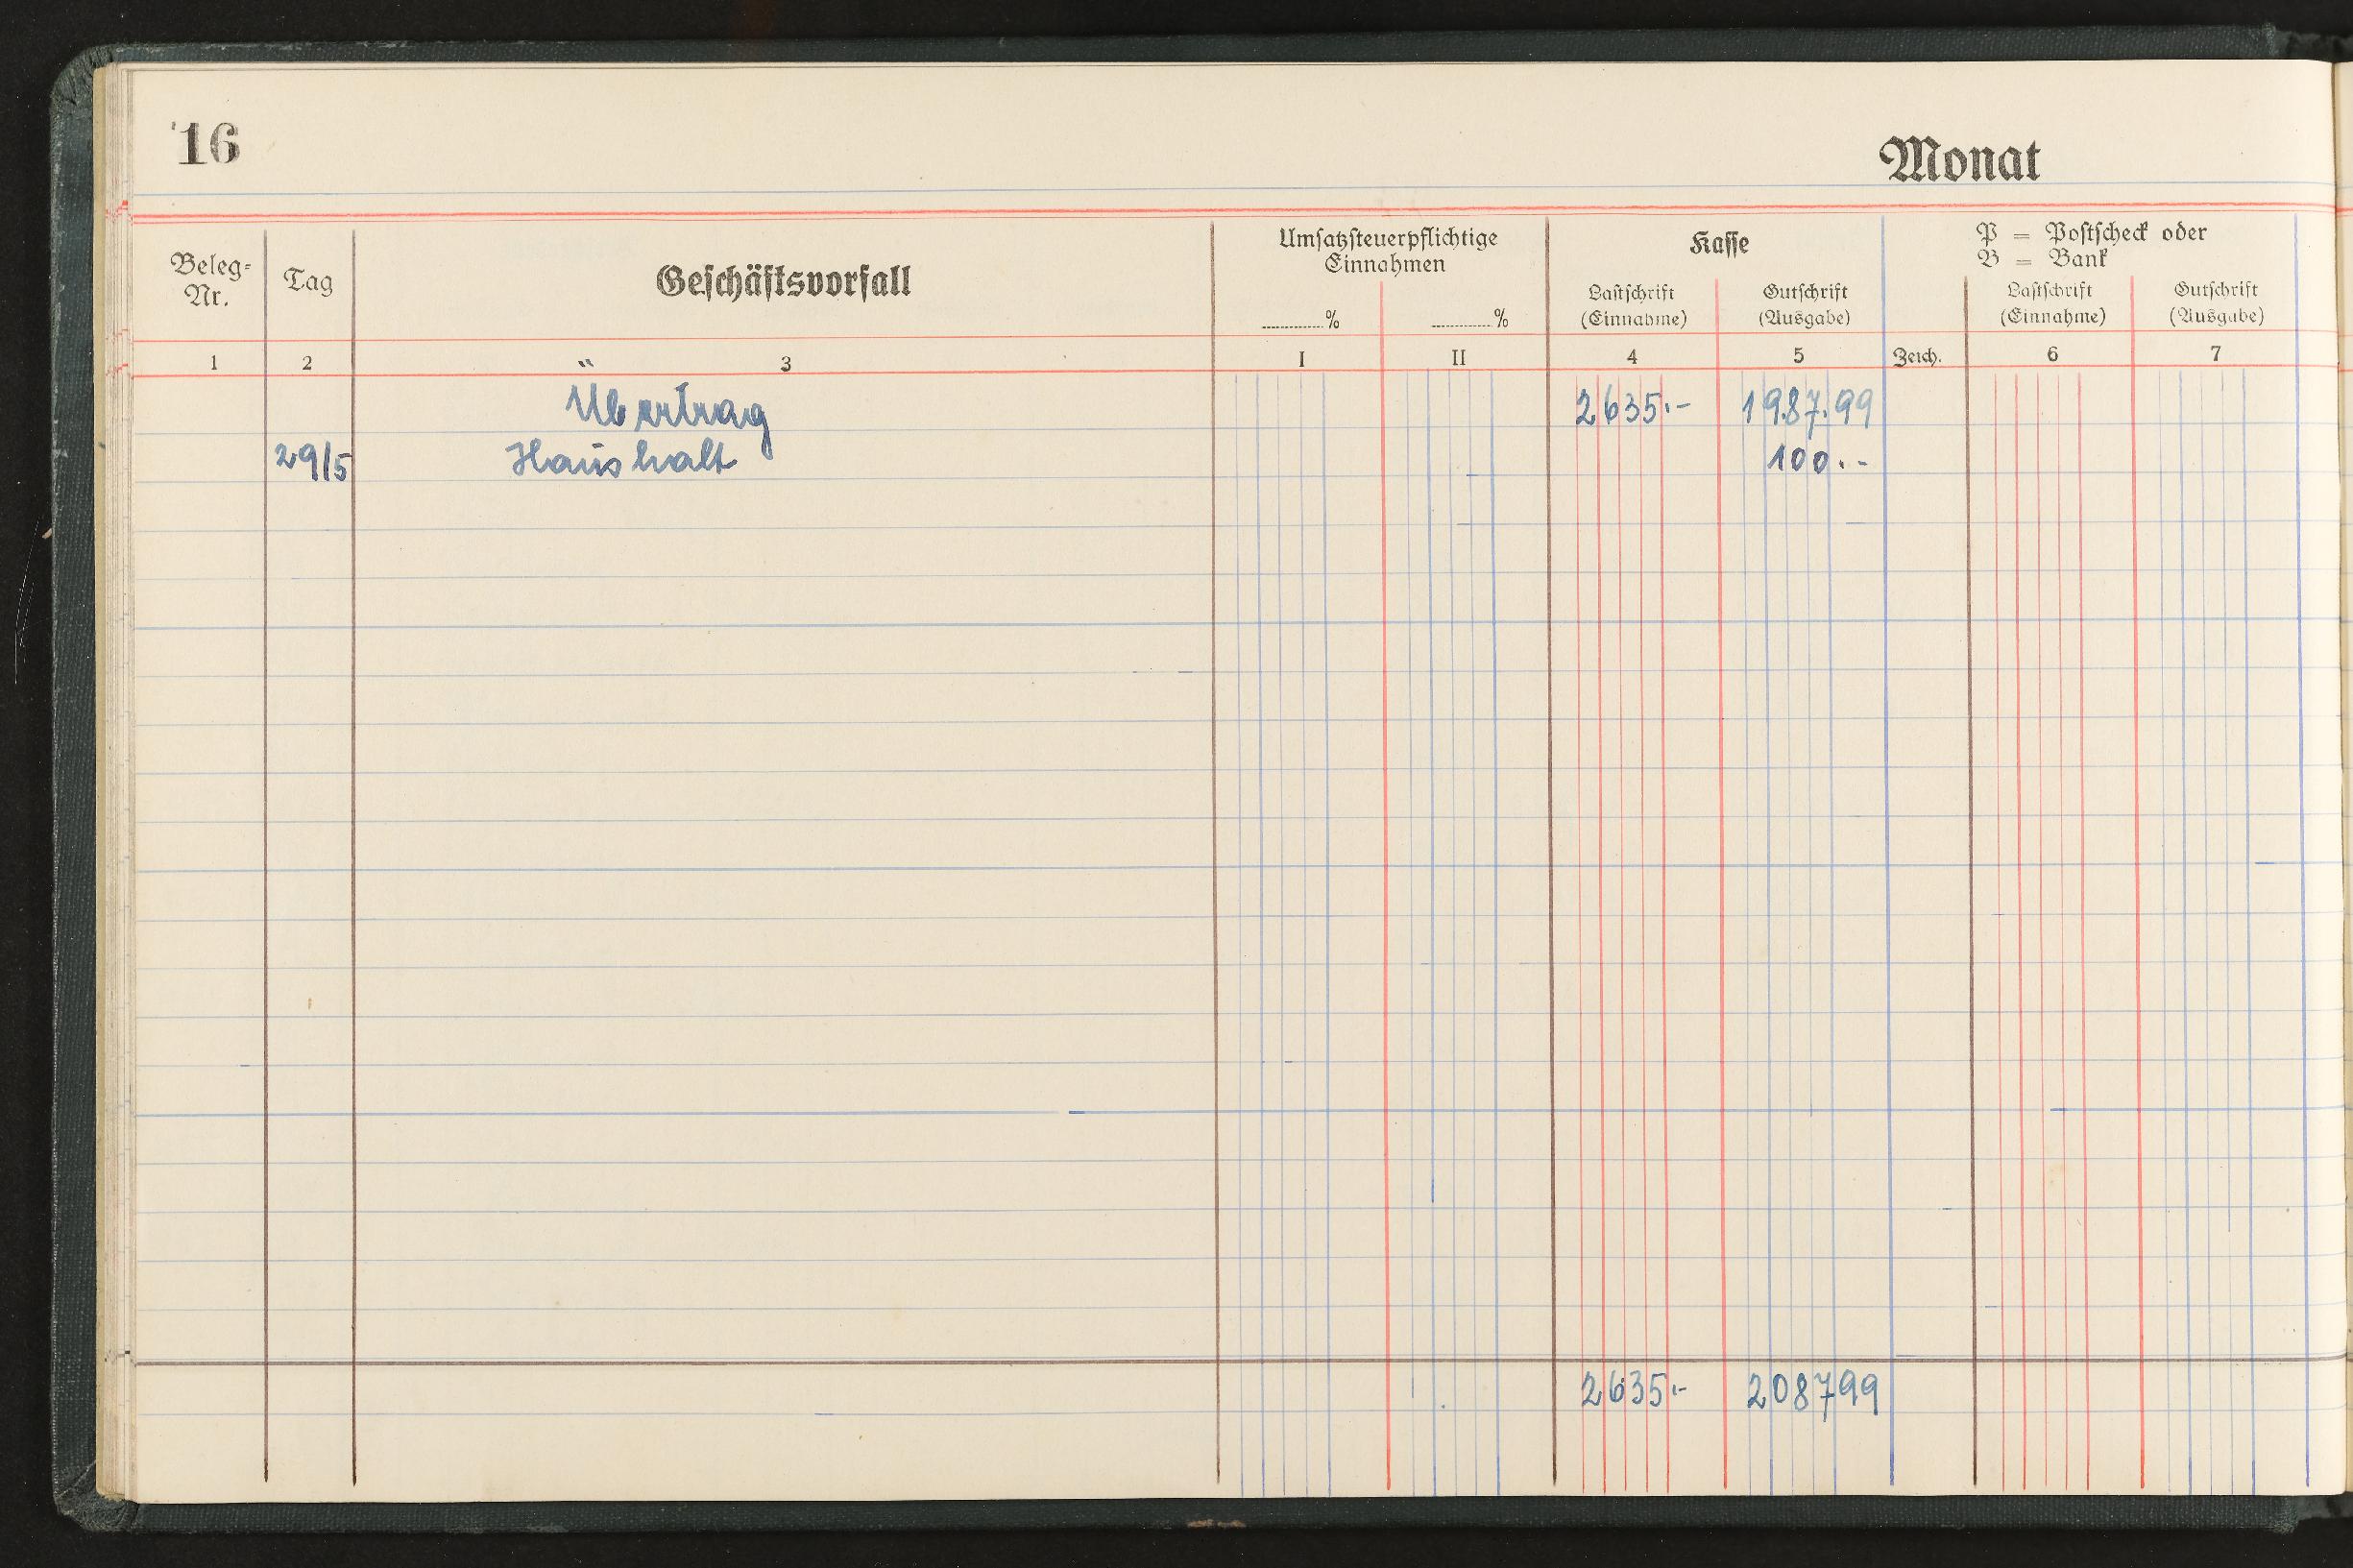 16
Monat
Beleg-
Nr.
Tag
Geschäftsvorfall
Umsatzsteuerpflichtige
Einnahmen
% %
Kasse
Lastschrift
(Einnahme)
Gutschrift
(Ausgabe)
P = Postscheck oder
B = Bank
Lastschrift
(Einnahme)
Gutschrift
(Ausgabe)
1 2 3 I II 4 5 Zeich. 6 7
Übertrag 2635.- 1987.99
29/5 Haushalt 100.-
2635.- 208799